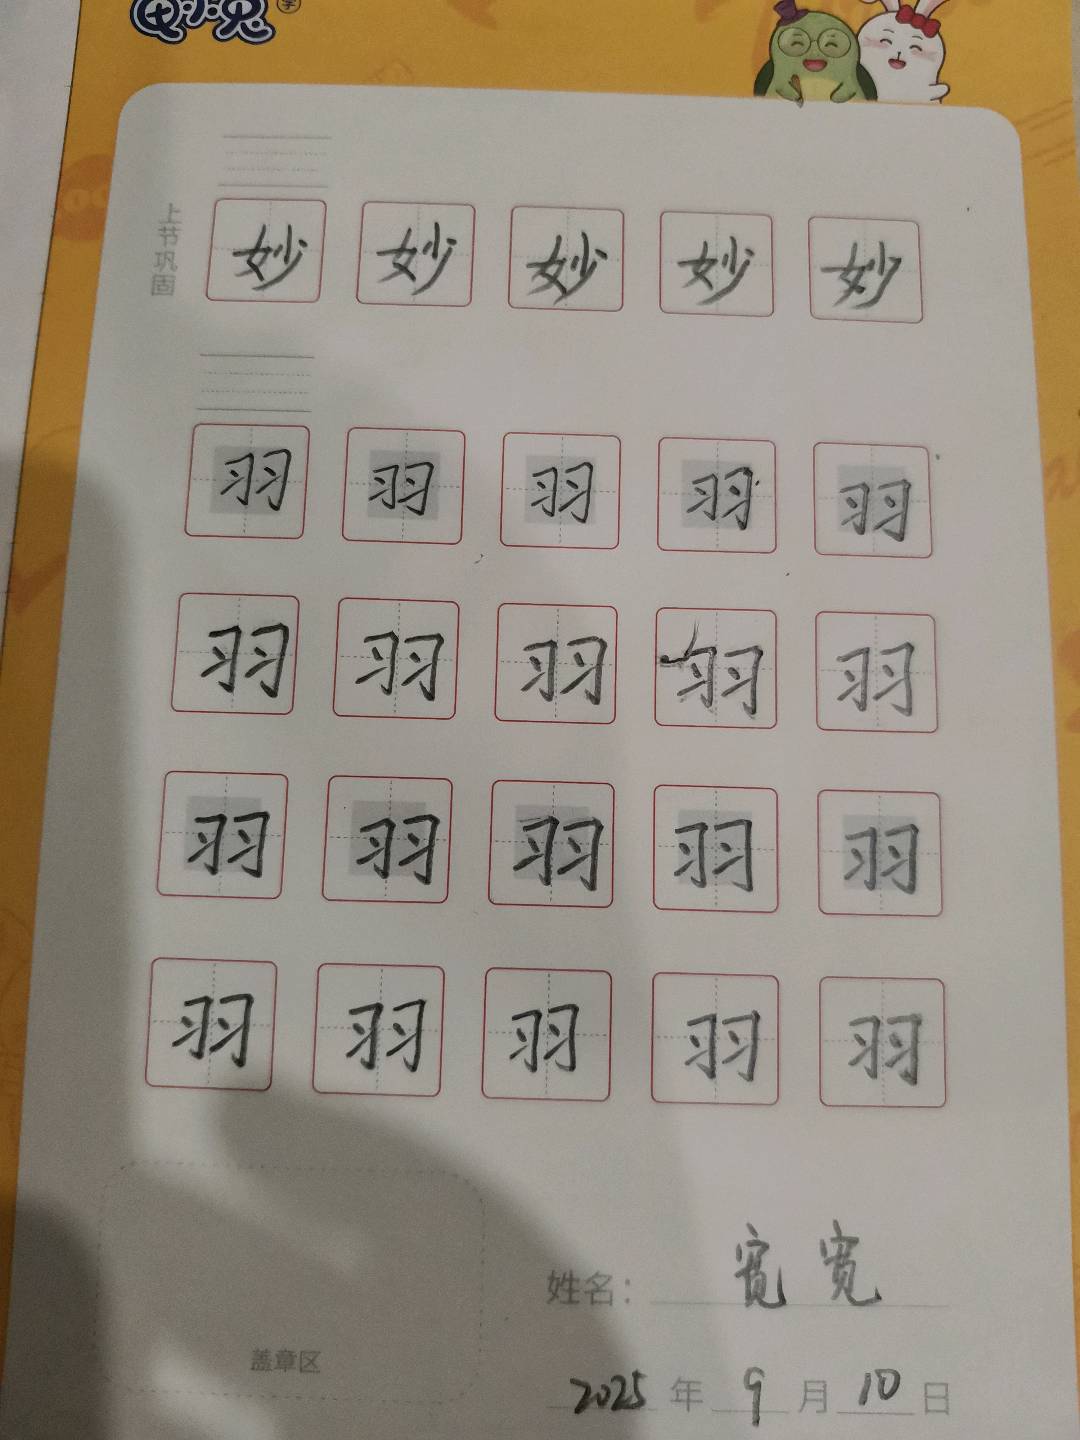 上节巩固
妙 妙 妙 妙 妙
羽 羽 羽 羽 羽
羽 羽 羽 羽 羽
羽 羽 羽 羽 羽
羽 羽 羽 羽 羽
姓名：宽宽
盖章区
2025年9月10日